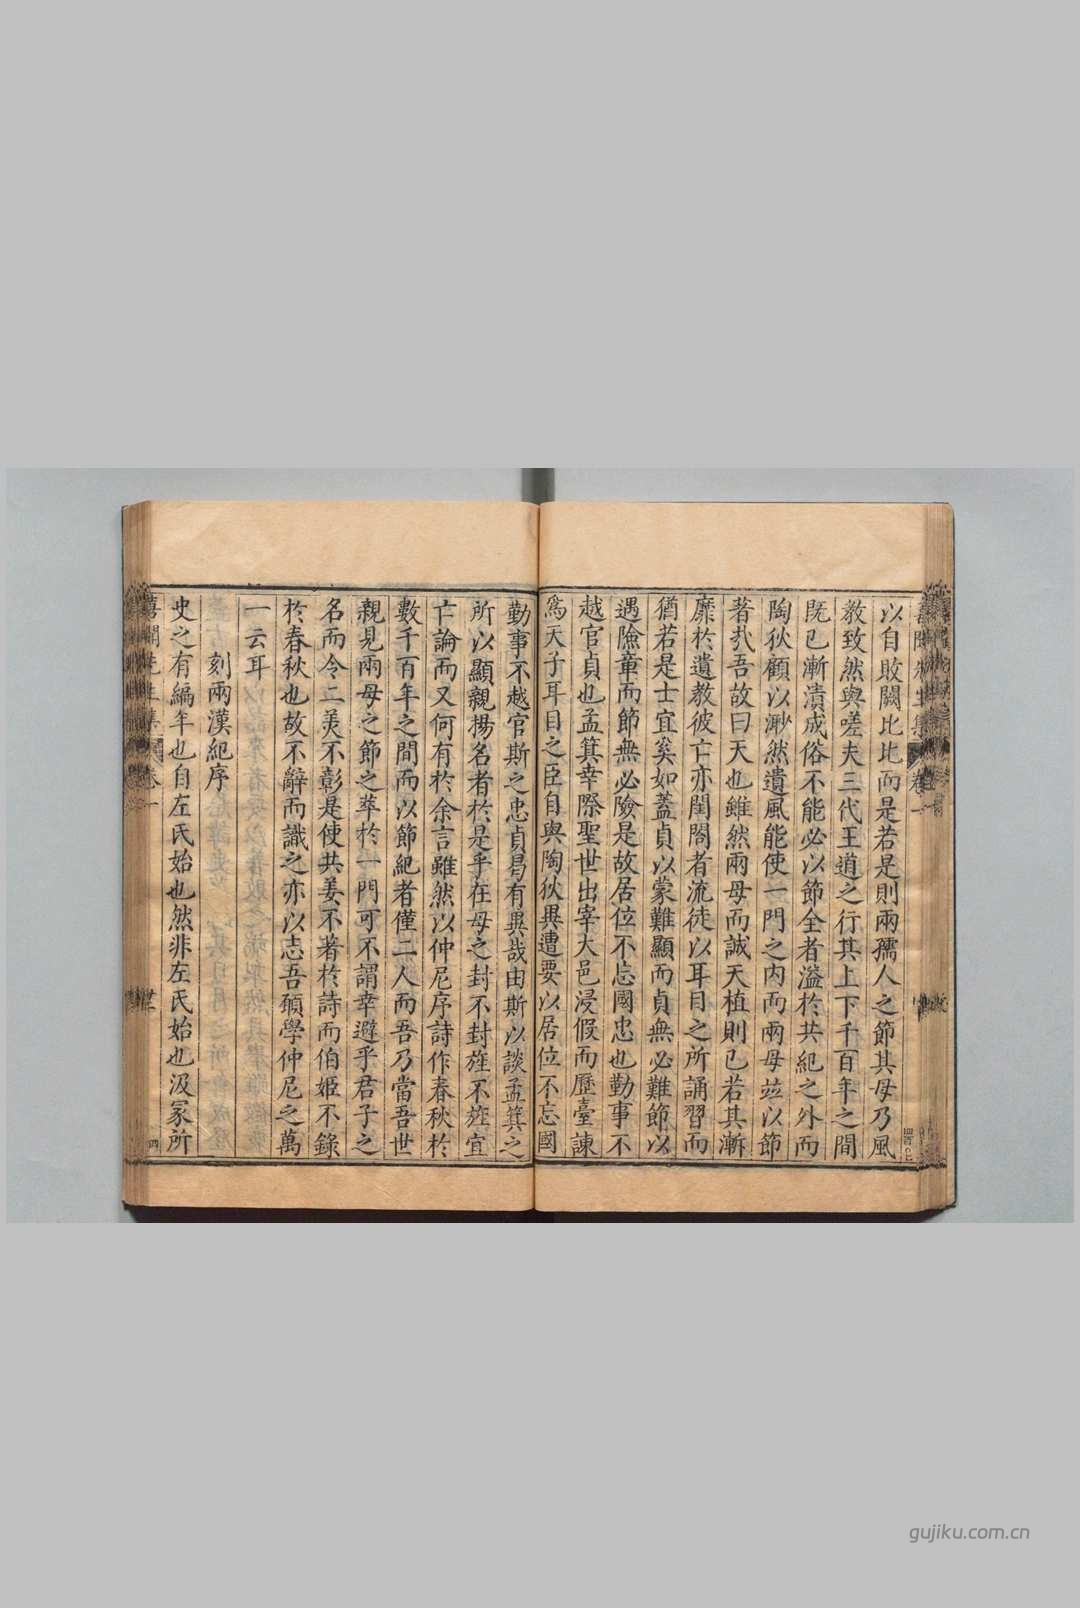 以自敗闕比比而是若是則兩孺人之節其母乃風
教致然與嗟夫三代王道之行其上下千百年之間
既已漸漬成俗不能必以節全者溢於共紀之外而
陶狄顧以渺然遺風能使一門之内而兩母竝以節
著㢤吾故曰天也雖然兩母而誠天植則已若其漸
靡於遺教彼亡亦閨閤者流徒以耳目之所誦習而
猶若是士宜奚如蓋貞以蒙難顯而貞無必難節以
遇險章而節無必險是故居位不忘國忠也勤事不
越官貞也孟箕幸際聖世出宰大邑浸假而歷臺諫
爲天子耳目之臣自與陶狄異遭要以居位不忘國
勤事不越官斯之忠貞曷有異哉由斯以談孟箕之
所以顯親揚名者於是乎在母之封不封旌不旌宜
亡論而又何有於余言雖然以仲尼序詩作春秋於
數千百年之間而以節紀者僅二人而吾乃當吾世
親見兩母之節之萃於一門可不謂幸避乎君子之
名而令二美不彰是使共姜不著於詩而伯姬不錄
於春秋也故不辭而識之亦以志吾碩學仲尼之萬
一云耳
刻兩漢紀序
史之有編年也自左氏始也然非左氏始也汲冢所
卷一
gujiku.com.cn